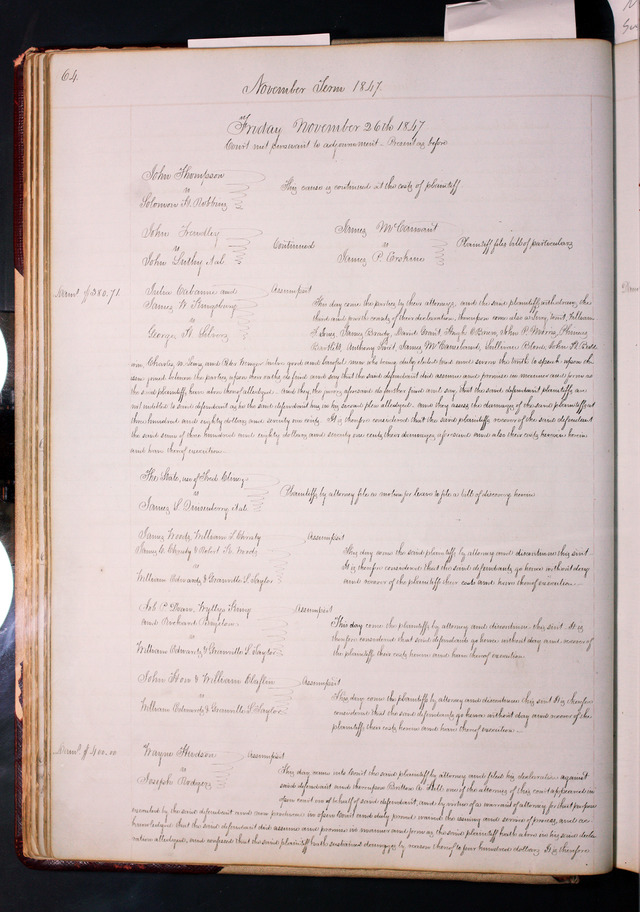 64.
November Term 1847.
Friday November 26th 1847
Court met pursuant to adjournment. Present as before
John Thompson
vs
Solomon H. Robbins
This cause is continued at the costs of plaintiff
John
vs
John et al
Continued
James McCannant
vs
James P. Erskine
Plaintiff files bill of particulars
$380.71.
Julia Cabanne and
James W. Kingsbury
vs
George H.
Assumpsit
This day come the parties by their attorneys, and the said plaintiffs withdraw the
third and fourth counts of their declaration, thereupon come also a Jury, to wit, William
James Brady, David Grant, Hugh OBrien, John P. Morris, Phineas
Bartlett, Anthony James William John H.
Charles W. and Peter twelve good and lawful men who being duly elected tried and sworn the truth to speak upon the
issue joined between the parties upon their oaths do find and say that the said defendant did assume and promise in manner and form as
the said plaintiffs have above thereof alleged. And they the jurors aforesaid do further find and say that the said defendant plaintiffs are
not indebted to said defendant as he the said defendant has in his second plea alledged. and they assess the damages of the said plaintiffs at
three hundred and eighty dollars and seventy one cents. It is therefore considered that the said plaintiffs recover of the said defendant
the said sum of three hundred and eighty dollars and seventy one cents, their damages aforesaid and also their costs herein
and have thereof execution.
The State, use of
vs
James S. et al.
Plaintiffs by attorney file a motion for leave to file a bill of discovery herein
James Woods, William T. Christy
James C. Christy & Robert K. Woods
vs
William Edwards & Granville S. Taylor
Assumpsit
This day come the said plaintiffs by attorney and discontinue this suit.
It is therefore considered that the said defendants go hence without day
and recover of the plaintiffs their costs and have thereof execution.
Job C. Dean, Wyllys King
and Richard Bigelow
vs
William Edwards & Granville S. Taylor
Assumpsit
This day come the plaintiffs by attorney and discontinue this suit. It is
therefore considered that said defendants go hence without day and recover of
the plaintiffs their costs herein and have thereof execution.
John How & William Claflin
vs
William Edwards & Granville S. Taylor
Assumpsit
This day come the plaintiffs by attorney and discontinue this suit It is therefore
considered that the said defendants go hence without day and recover of the
plaintiffs their costs herein and have thereof execution.
$400.00
Wayne Hudson
vs
Joseph Rodgers
Assumpsit
This day comes into Court the said plaintiff by attorney and files his declaration against
said defendant and thereupon Britton A. Hill one of the attorneys of this court appeared in
open court on behalf of said defendant, and by virtue of a warrant of attorney for that purpose
executed by the said defendant and now produced in open Court and duly proved waives the issuing and service of process, and ac-
knowledges that the said defendant did assume and promise in manner and form as the said plaintiff hath above in his said decla-
ration alledged, and confesses that the said plaintiff hath sustained damages by reason thereof to four hundred dollars It is therefore